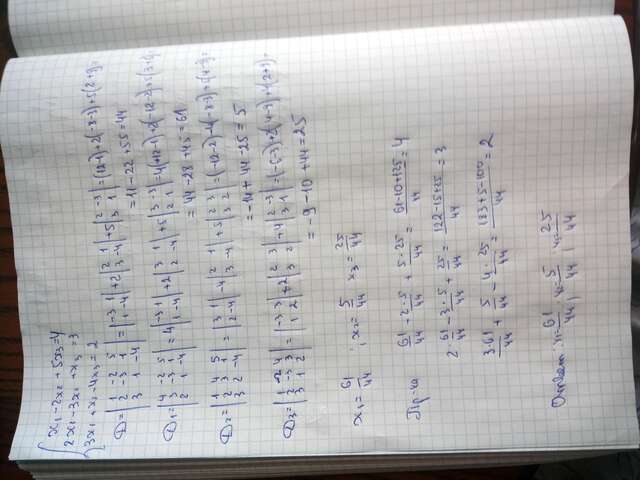 x₁ - 2x₂ + 5x₃ = 4
2x₁ - 3x₂ + x₃ = 3
3x₁ + x₂ - 4x₃ = 2
D = |1 -2 5; 2 -3 1; 3 1 -4| = |-3 1; 1 -4| + 2|2 1; 3 -4| + 5|2 -3; 3 1| = (12-1) + 2(-8-3) + 5(2+9) =
= 11 - 22 + 55 = 44
D₁ = |4 -2 5; 3 -3 1; 2 1 -4| = 4|-3 1; 1 -4| + 2|3 1; 2 -4| + 5|3 -3; 2 1| = 4(12-1) + 2(-12-2) + 5(3+6) =
= 44 - 28 + 45 = 61
D₂ = |1 4 5; 2 3 1; 3 2 -4| = |3 1; 2 -4| - 4|2 1; 3 -4| + 5|2 3; 3 2| = (-12-2) - 4(-8-3) + 5(4-9) =
= -14 + 44 - 25 = 5
D₃ = |1 -2 4; 2 -3 3; 3 1 2| = |-3 3; 1 2| + 2|2 3; 3 2| + 4|2 -3; 3 1| = (-6-3) + 2(4-9) + 4(2+9) =
= -9 - 10 + 44 = 25
x₁ = 61/44 ; x₂ = 5/44 x₃ = 25/44
Пр-ка
61/44 - 2·5/44 + 5·25/44 = 61-10+125/44 = 4
2·61/44 - 3·5/44 + 25/44 = 122-15+25/44 = 3
3·61/44 + 5/44 - 4·25/44 = 183+5-100/44 = 2
Ответ: 61/44 ; 5/44 ; 25/44